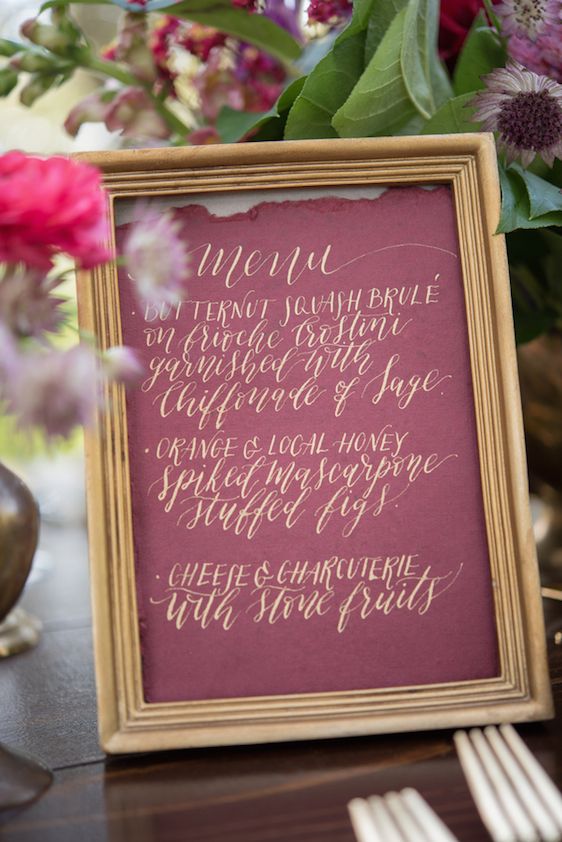 menu
• BUTTERNUT SQUASH BRULÉ
on frioche Crostini
garnished with
Chiffonade of Sage.
• ORANGE & LOCAL HONEY
spiked mascarpone
stuffed figs.
• CHEESE & CHARCUTERIE
with stone fruits